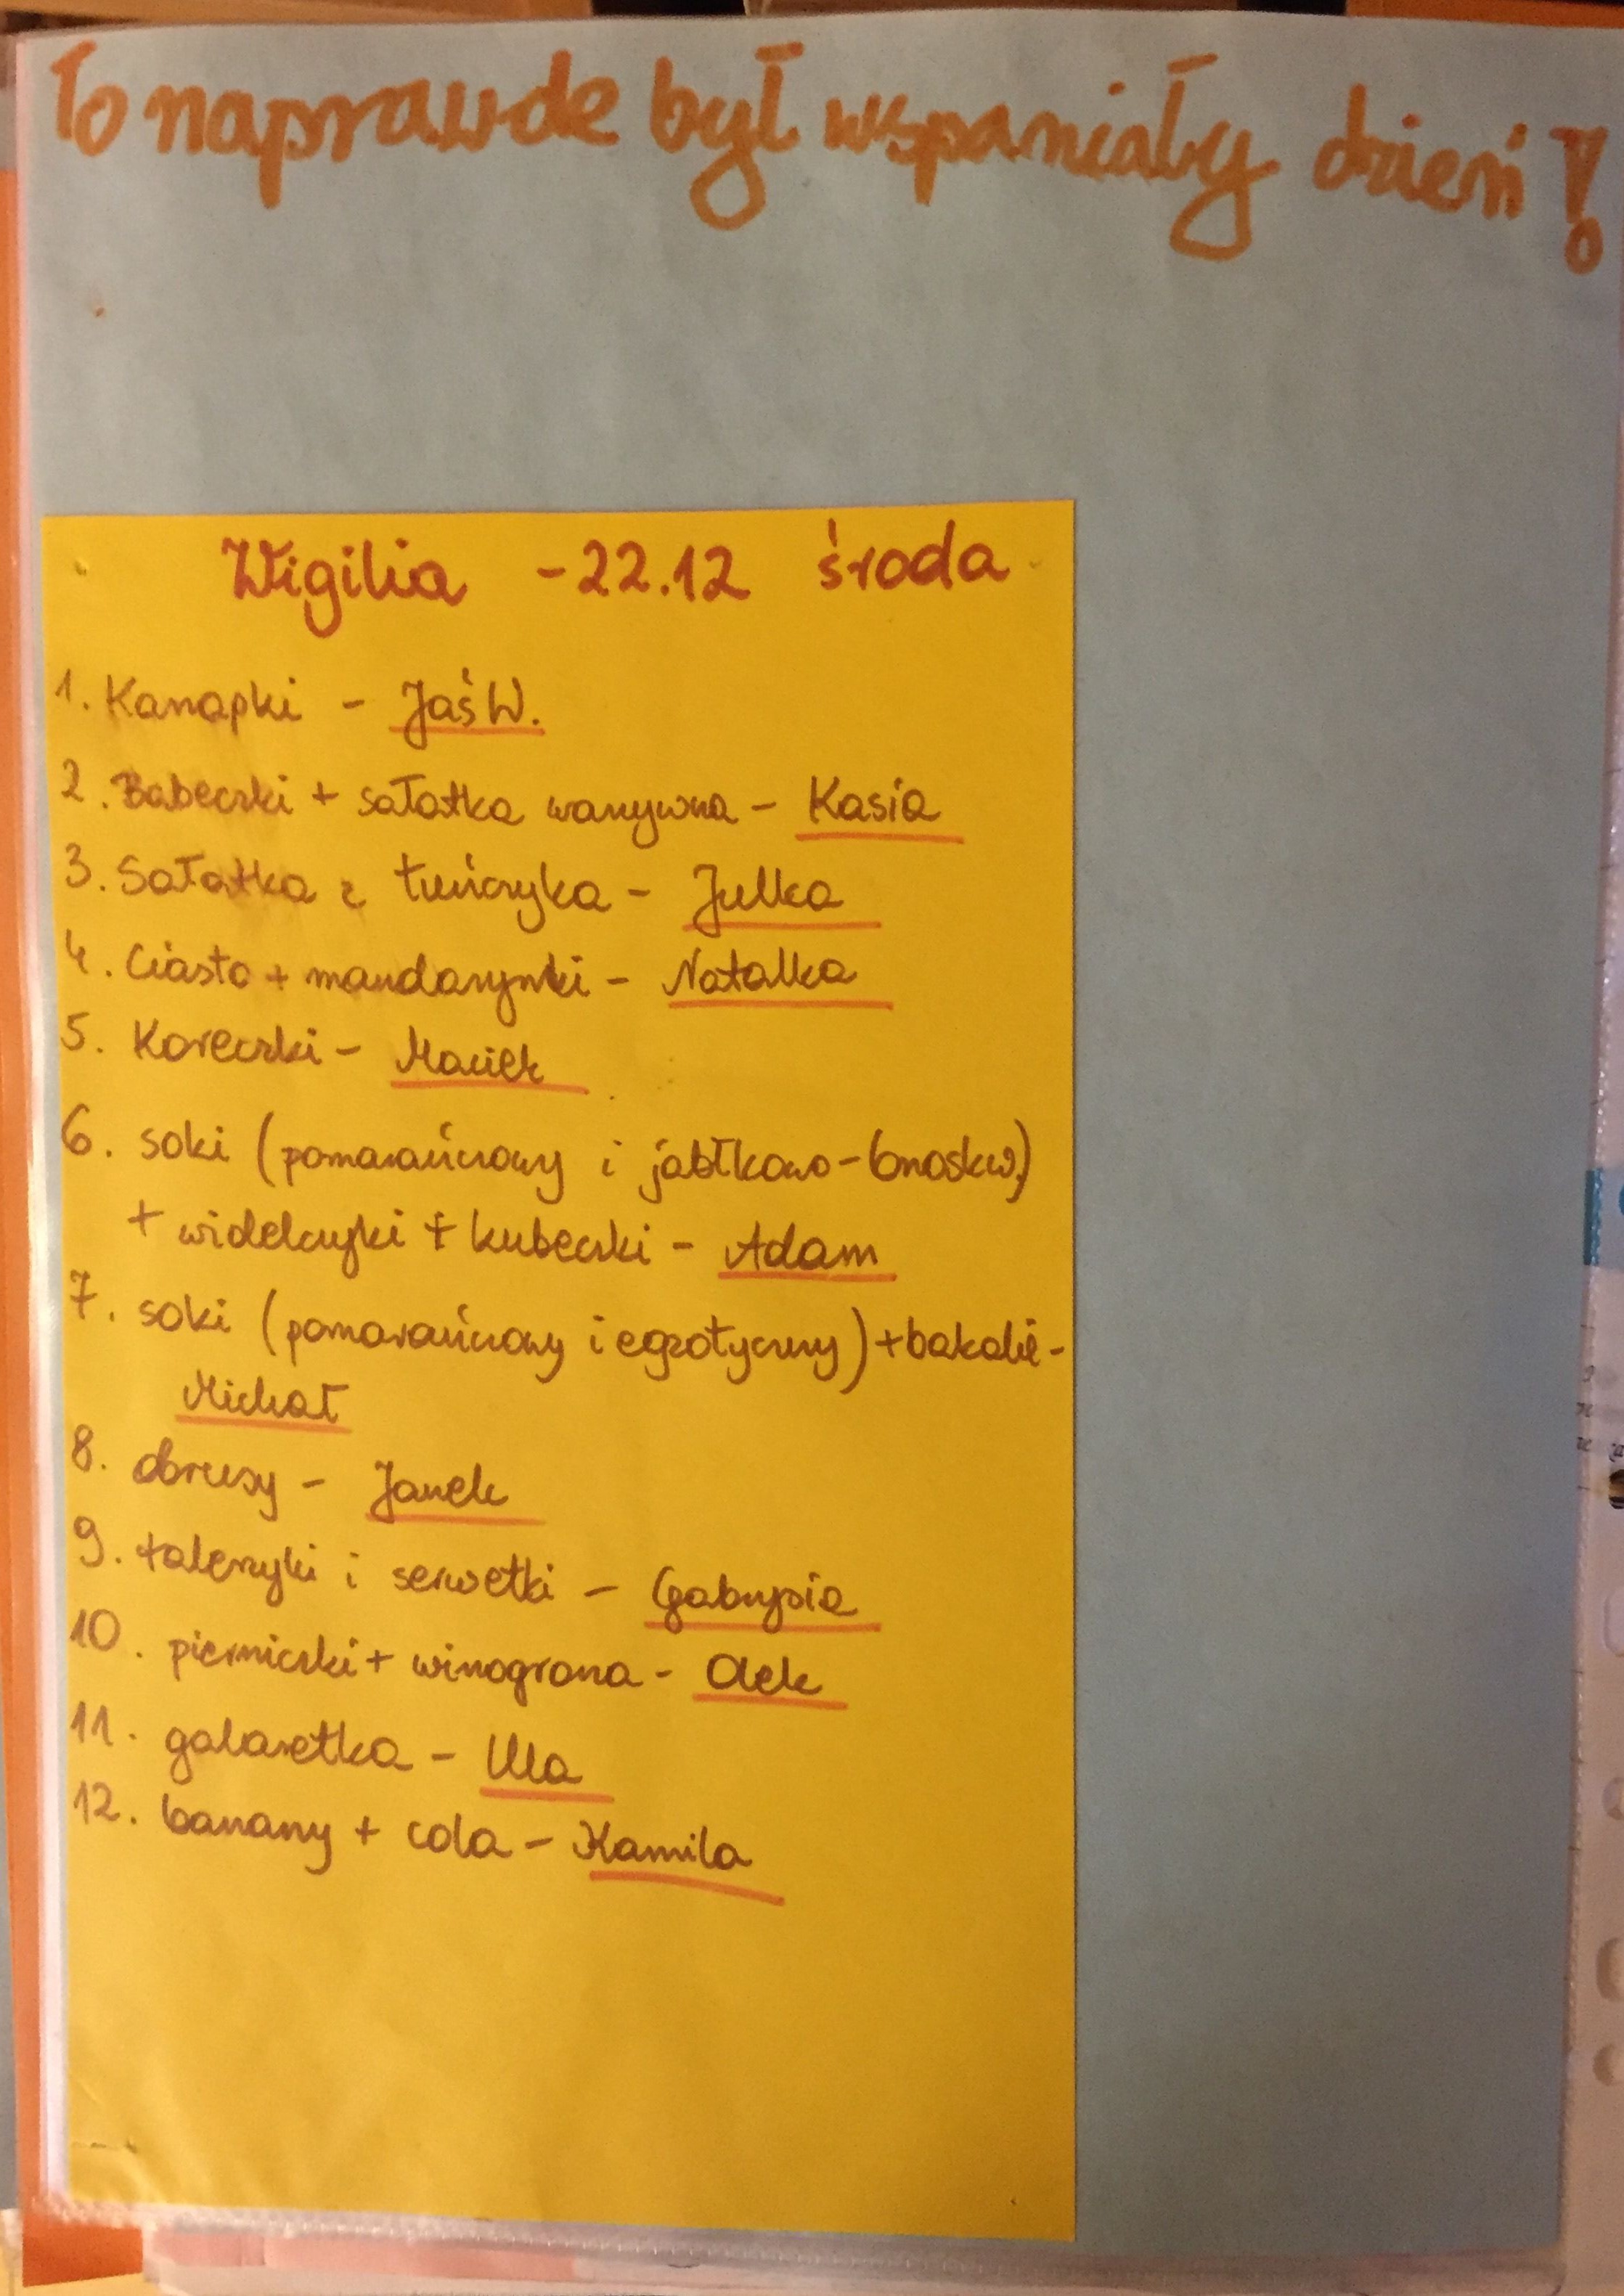 To naprawde był wspaniały dzień!
Wigilia - 22.12 środa
1. Kanapki - Jaś W.
2. Babeczki + sałatka warzywna - Kasia
3. Sałatka z tuńczyka - Julka
4. Ciasto + mandarynki - Natalka
5. Koreczki - Maciek
6. soki (pomarańczowy i jabłkowo-brzoskw.)
+ widelczyki + kubeczki - Adam
7. soki (pomarańczowy i egzotyczny) + bakalie -
Michał
8. obrusy - Janek
9. talerzyki i serwetki - Gabrysia
10. pierniczki + winogrona - Olek
11. galaretka - Ula
12. banany + cola - Kamila